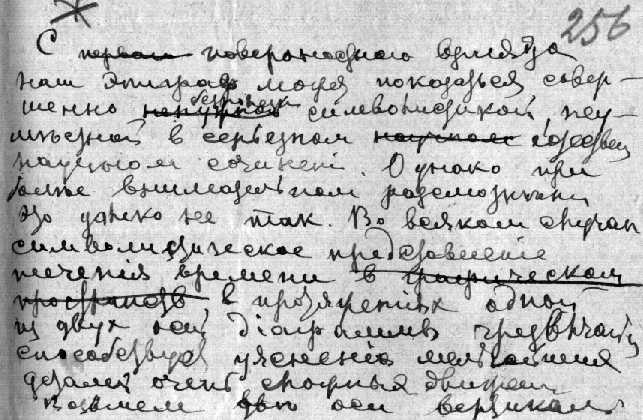 256
С первого поверхностного взгляда
наш эпиграф может показаться совер-
шенно ненужной символистикой, неу-
местной в серьезном научном
научном сочинении. Однако при
более внимательном рассмотрении
это далеко не так. Во всяком случае
символическое представление
течения времени в графическом
пространстве в протяжениях одной
из двух осей діаграммы чрезвычайно
способствует уясненію мельчайших
деталей очень сложных движений.
Возьмем две оси вертикаль